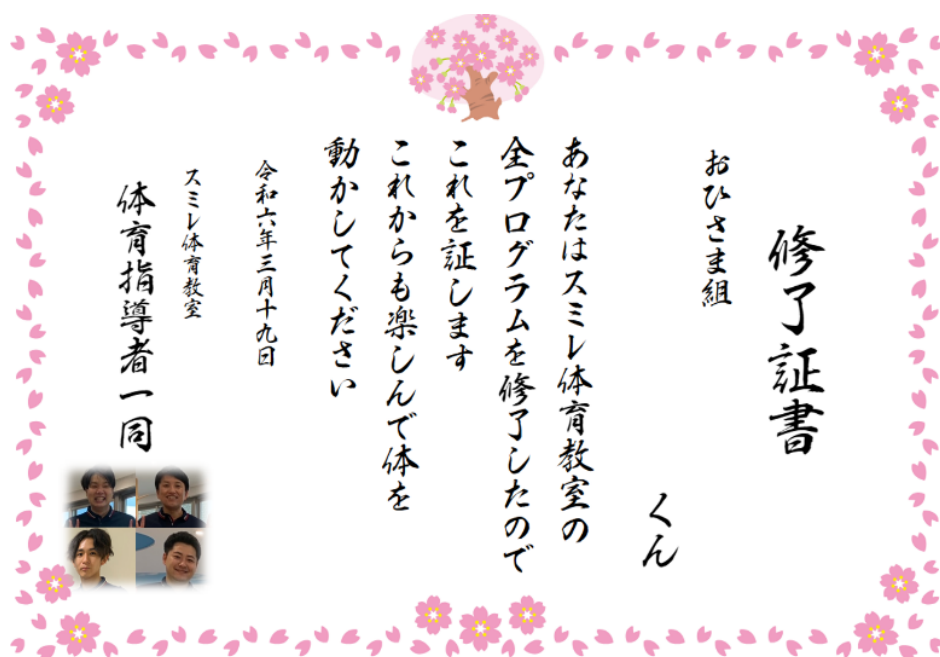 修了証書
おひさま組
くん
あなたはスミレ体育教室の
全プログラムを修了したので
これを証します
これからも楽しんで体を
動かしてください
令和六年三月十九日
スミレ体育教室
体育指導者一同